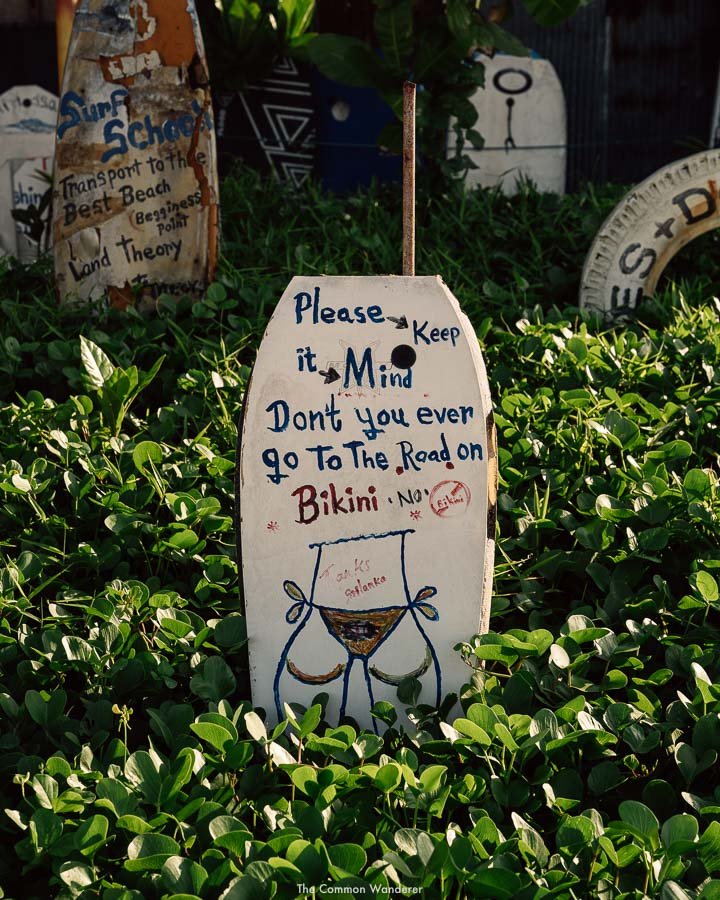 Surf
School
Transport to the
Best Beach
Begginess
Point
Land Theory
Please Keep
it Mind
Don't you ever
go To The Road on
Bikini · NO ·
Bikini
Tanks
Srilanka
ES + D
The Common Wanderer